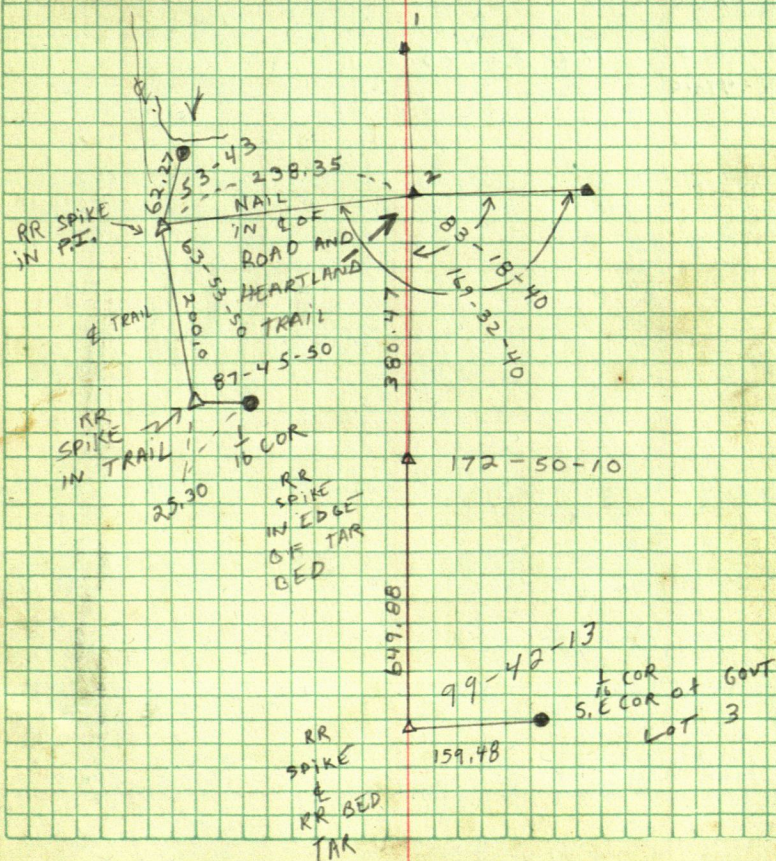 1
2
℄
62.27
53-43
238.35
RR SPIKE
IN P.I.
NAIL
IN ℄ OF
ROAD AND
HEARTLAND
TRAIL
63-53-50
200.0
℄ TRAIL
83-18-40
169-32-40
380.47
87-45-50
RR
SPIKE
IN TRAIL
1/16 COR
25.30
RR
SPIKE
IN EDGE
OF TAR
BED
172-50-10
649.88
99-42-13
1/16 COR
S.E COR of GOVT
LOT 3
159.48
RR
SPIKE
℄
RR BED
TAR